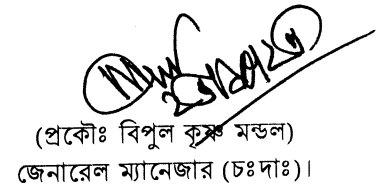 (প্রকৌঃ বিপুল কৃষ্ণ মন্ডল)
জেনারেল ম্যানেজার (চঃদাঃ)।